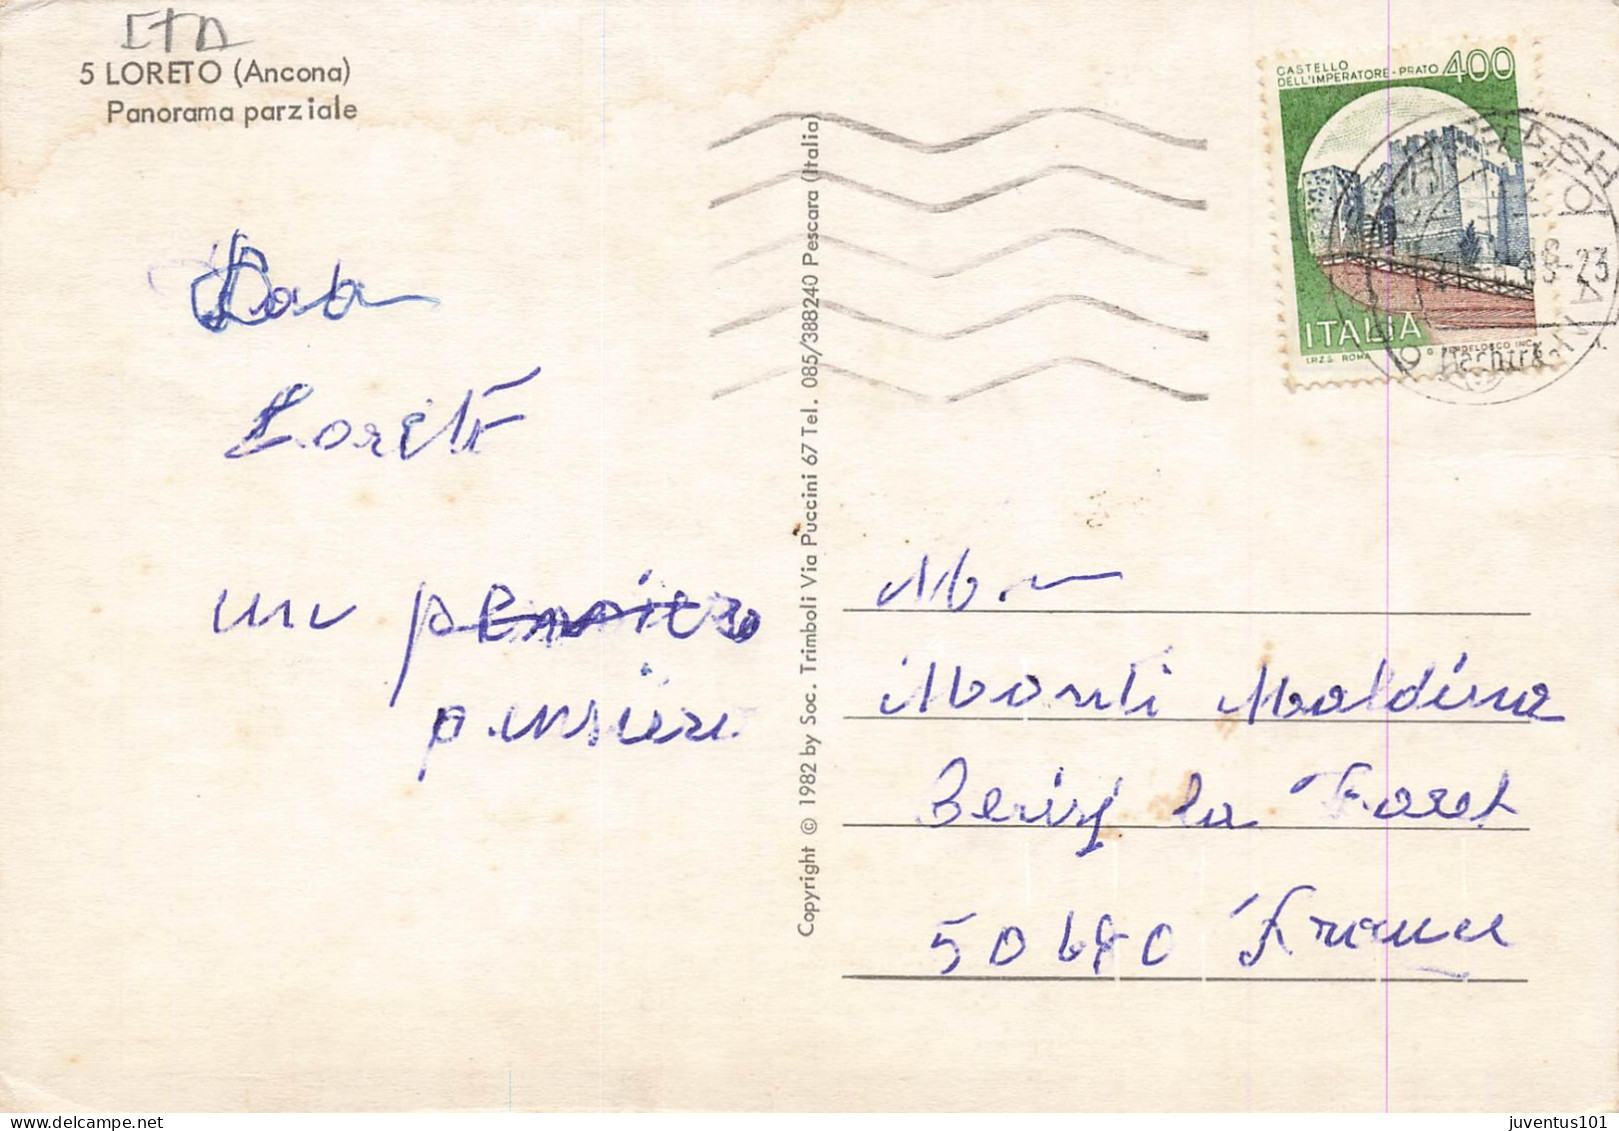 ITA
5 LORETO (Ancona)
Panorama parziale
Da
Loreto
un pensiero
pensiero
Copyright © 1982 by Soc. Trimboli Via Puccini 67 Tel. 085/388240 Pescara (Italia)
CASTELLO
DELL'IMPERATORE - PRATO 400
ITALIA
I.P.Z.S. ROMA
Monti Maldina
la Foret
50680 France
juventus101